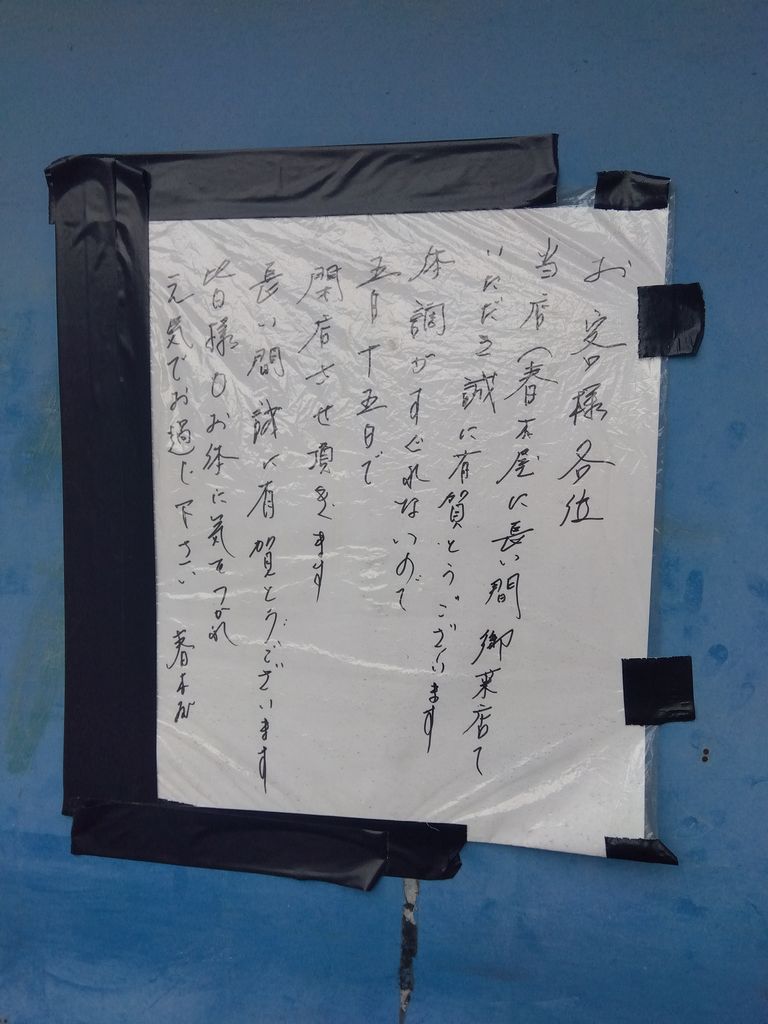 お客様各位
当店(春木屋に長い間御来店て
いただき誠に有賀とうございます
体調がすぐれないので
五月十五日で
閉店させ頂きます
長い間誠に有賀とうございます
皆様もお体に気をつかれ
元気でお過じ下さい 春木屋